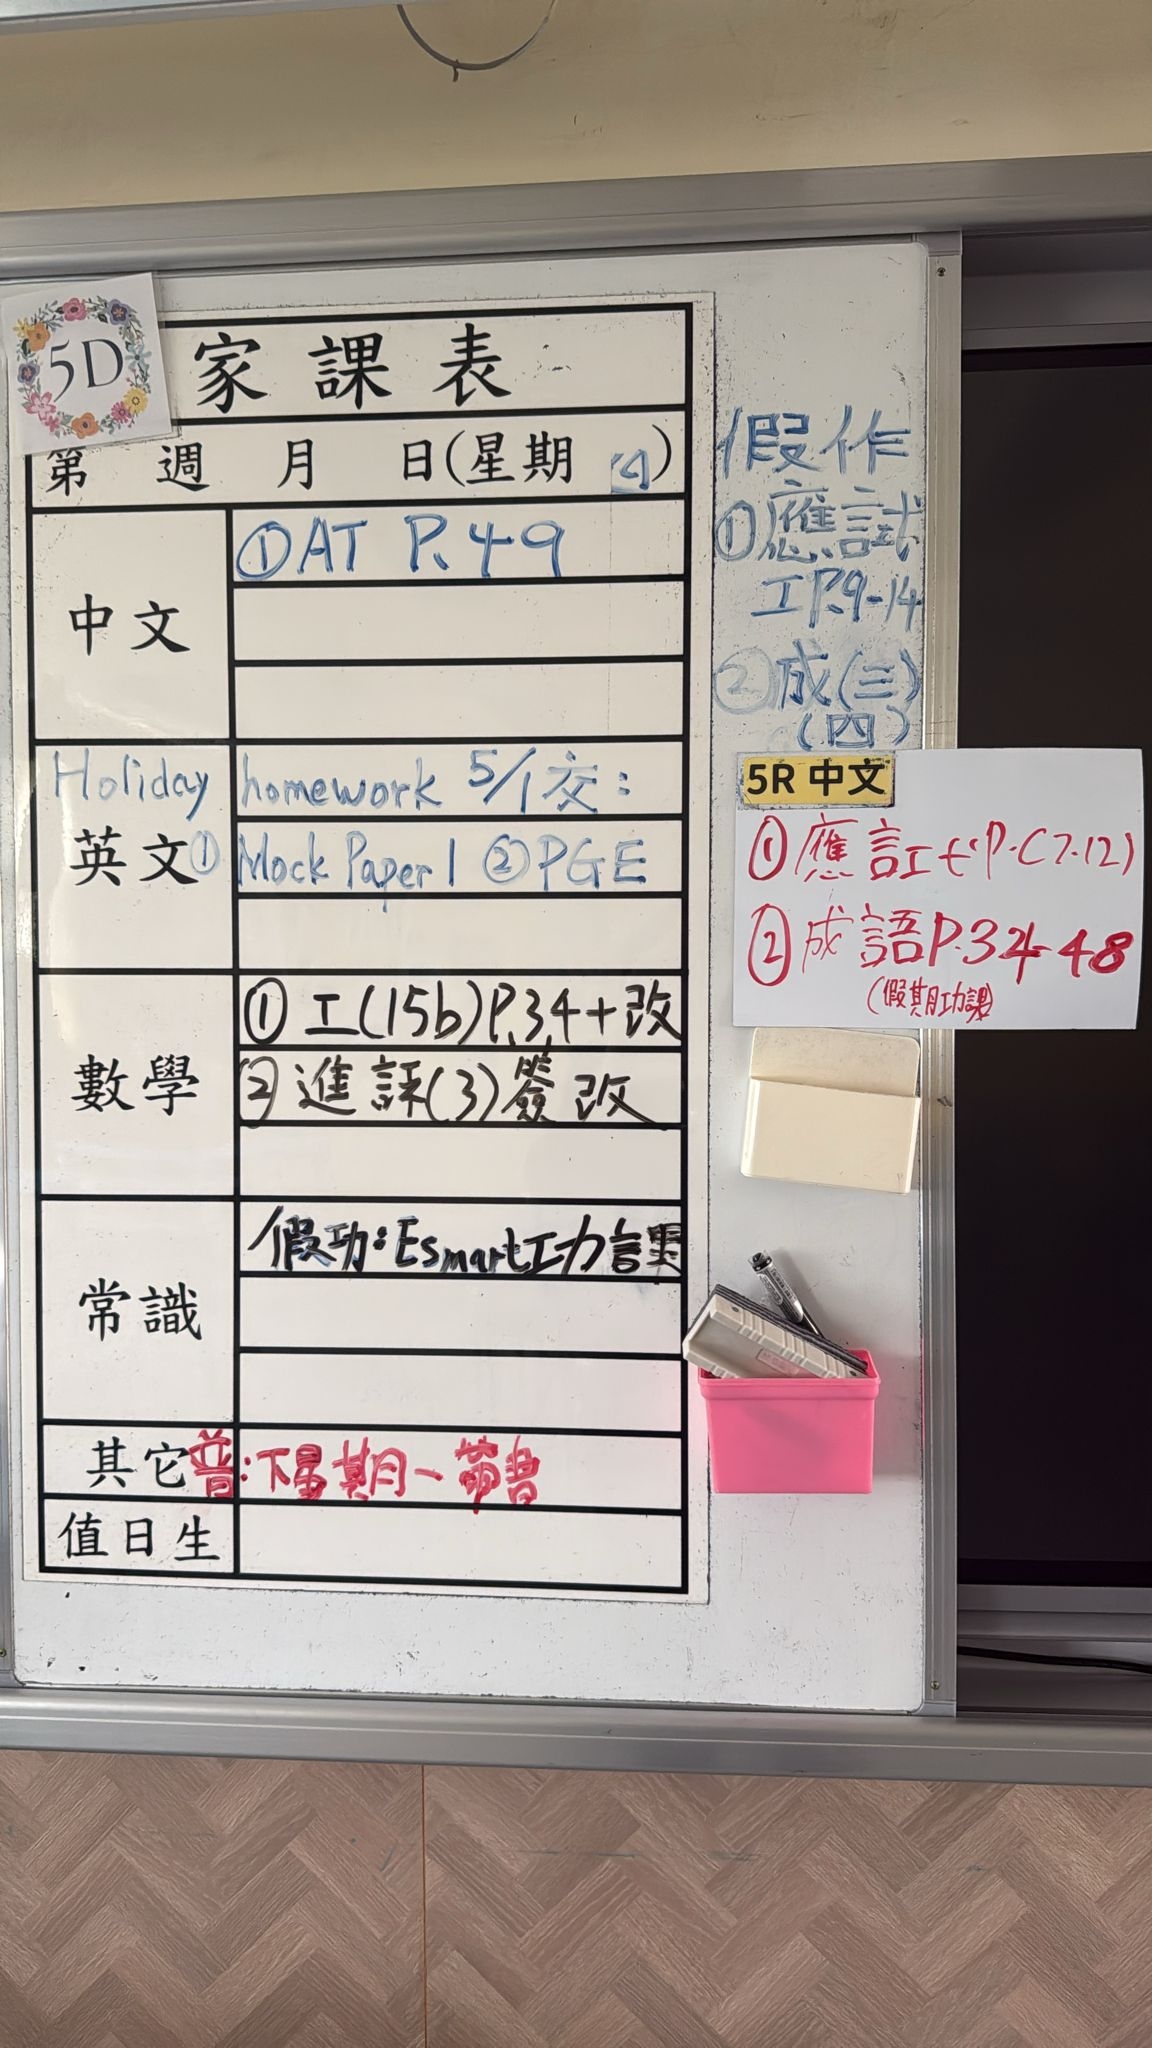 5D
家課表
第 週 月 日(星期 四)
中文
①AT P.49
英文
Holiday homework 5/1交:
①Mock Paper 1 ②PGE
數學
①工(15b)P.34+改
②進評(3)簽改
常識
假功:Esmart功課
其它
普:下星期一帶書
值日生
假作
①應試
工P.9-14
②成(三)
(四)
5R 中文
①應試(P.(7-12)
②成語P.34-48
(假期功課)